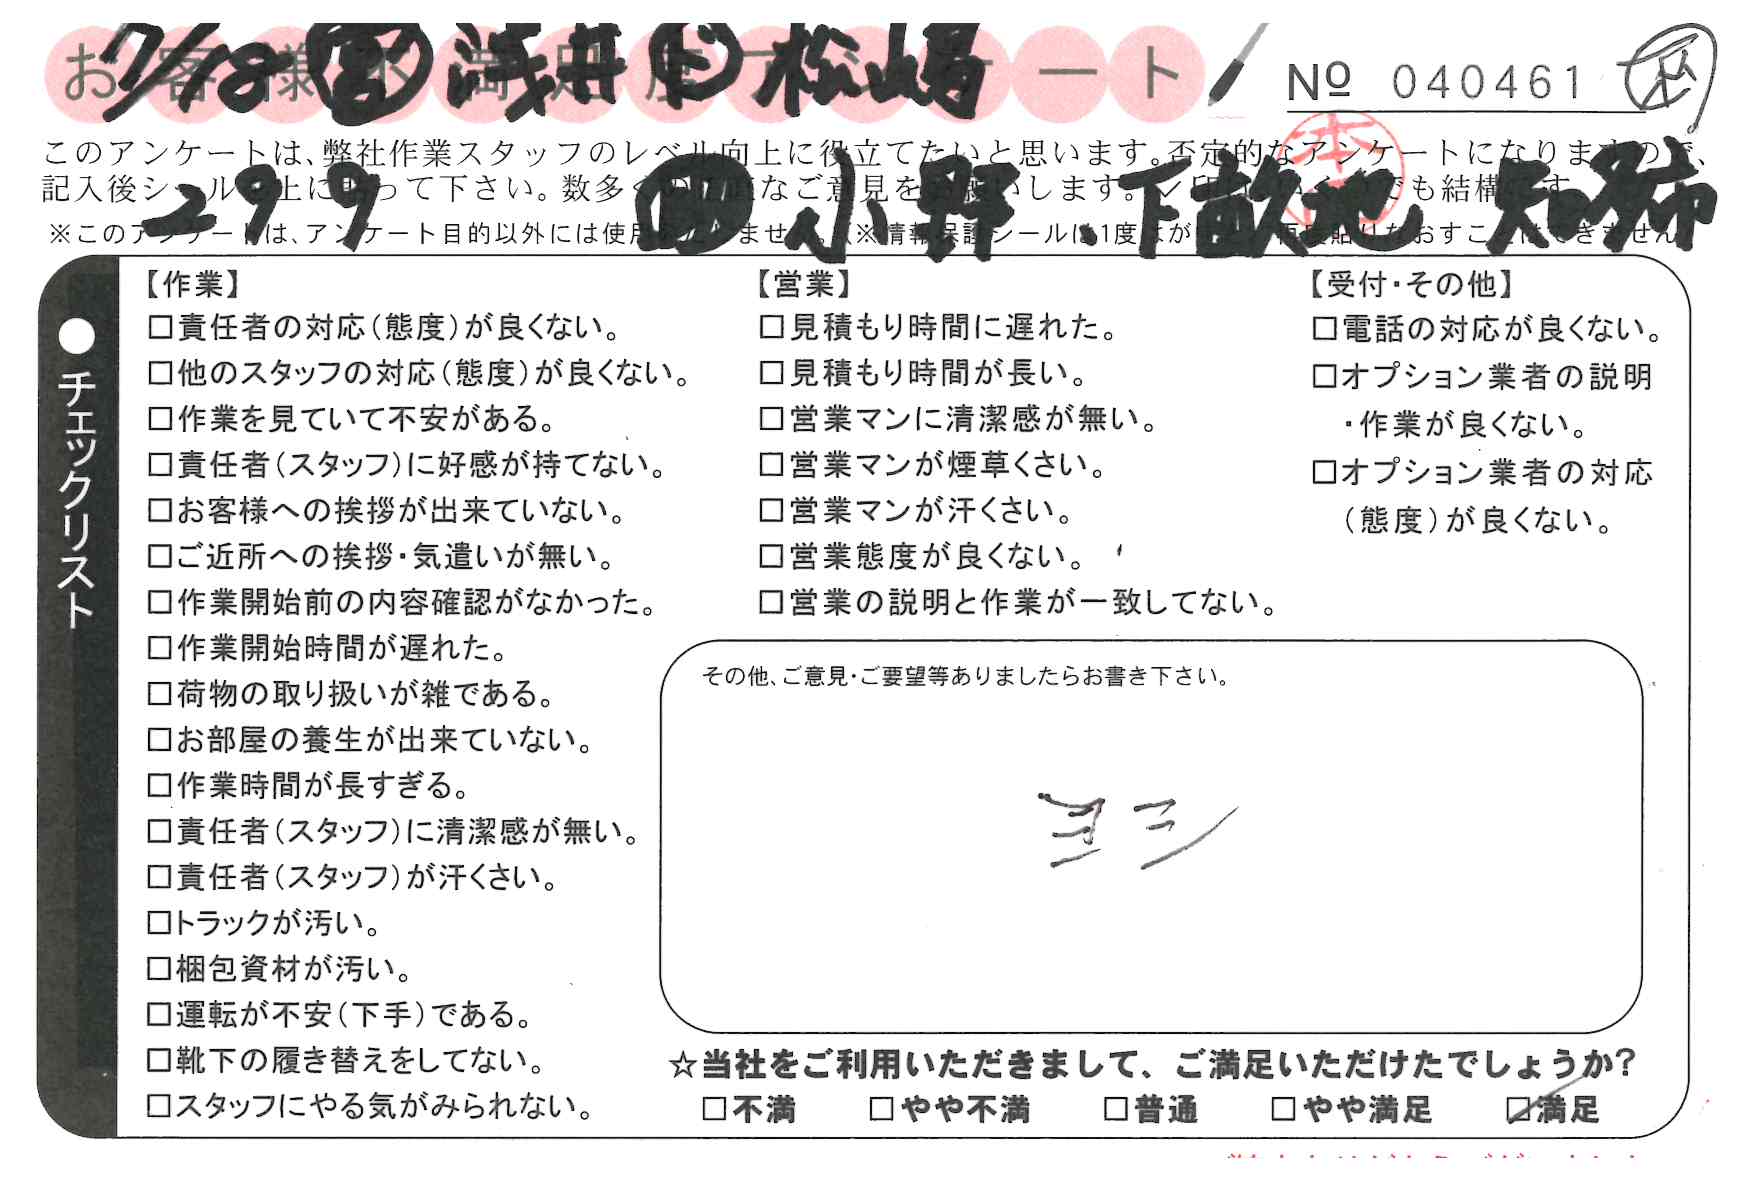 お客様不満足度アンケート
7/18 営 浅井 ド 松嶋
№ 040461
このアンケートは、弊社作業スタッフのレベル向上に役立てたいと思います。否定的なアンケートになりますので、
記入後シールを上に貼って下さい。数多くの正直なご意見をお願いします。
299 小野 下畝地 知姉
※このアンケートは、アンケート目的以外には使用いたしません。(※情報保護シールは1度はがすと再度貼りなおすことはできません
本
●チェックリスト
【作業】
□責任者の対応(態度)が良くない。
□他のスタッフの対応(態度)が良くない。
□作業を見ていて不安がある。
□責任者(スタッフ)に好感が持てない。
□お客様への挨拶が出来ていない。
□ご近所への挨拶・気遣いが無い。
□作業開始前の内容確認がなかった。
□作業開始時間が遅れた。
□荷物の取り扱いが雑である。
□お部屋の養生が出来ていない。
□作業時間が長すぎる。
□責任者(スタッフ)に清潔感が無い。
□責任者(スタッフ)が汗くさい。
□トラックが汚い。
□梱包資材が汚い。
□運転が不安(下手)である。
□靴下の履き替えをしてない。
□スタッフにやる気がみられない。
【営業】
□見積もり時間に遅れた。
□見積もり時間が長い。
□営業マンに清潔感が無い。
□営業マンが煙草くさい。
□営業マンが汗くさい。
□営業態度が良くない。
□営業の説明と作業が一致してない。
【受付・その他】
□電話の対応が良くない。
□オプション業者の説明
・作業が良くない。
□オプション業者の対応
(態度)が良くない。
その他、ご意見・ご要望等ありましたらお書き下さい。
ヨシ
☆当社をご利用いただきまして、ご満足いただけたでしょうか?
□不満 □やや不満 □普通 □やや満足 ☑満足